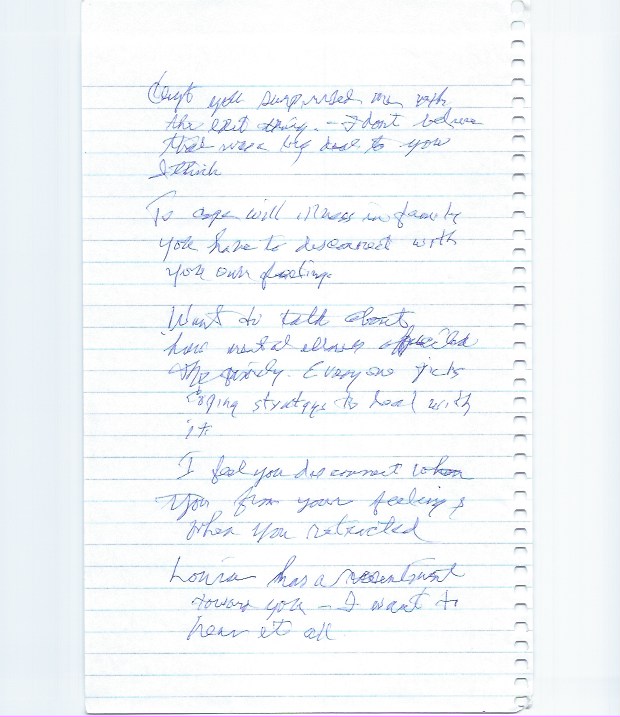 you surprised me with
the exit thing. - I dont believe
that was a big deal to you
I think
To cope will illness in family
you have to disconnect with
you own feeling.
Want to talk about
how mental illness affected
the family. Everyone picks
coping strategys to deal with
it.
I feel you disconnect when
you from your feelings
when you retricted
Louisa has a resentment
toward you - I want to
hear it all